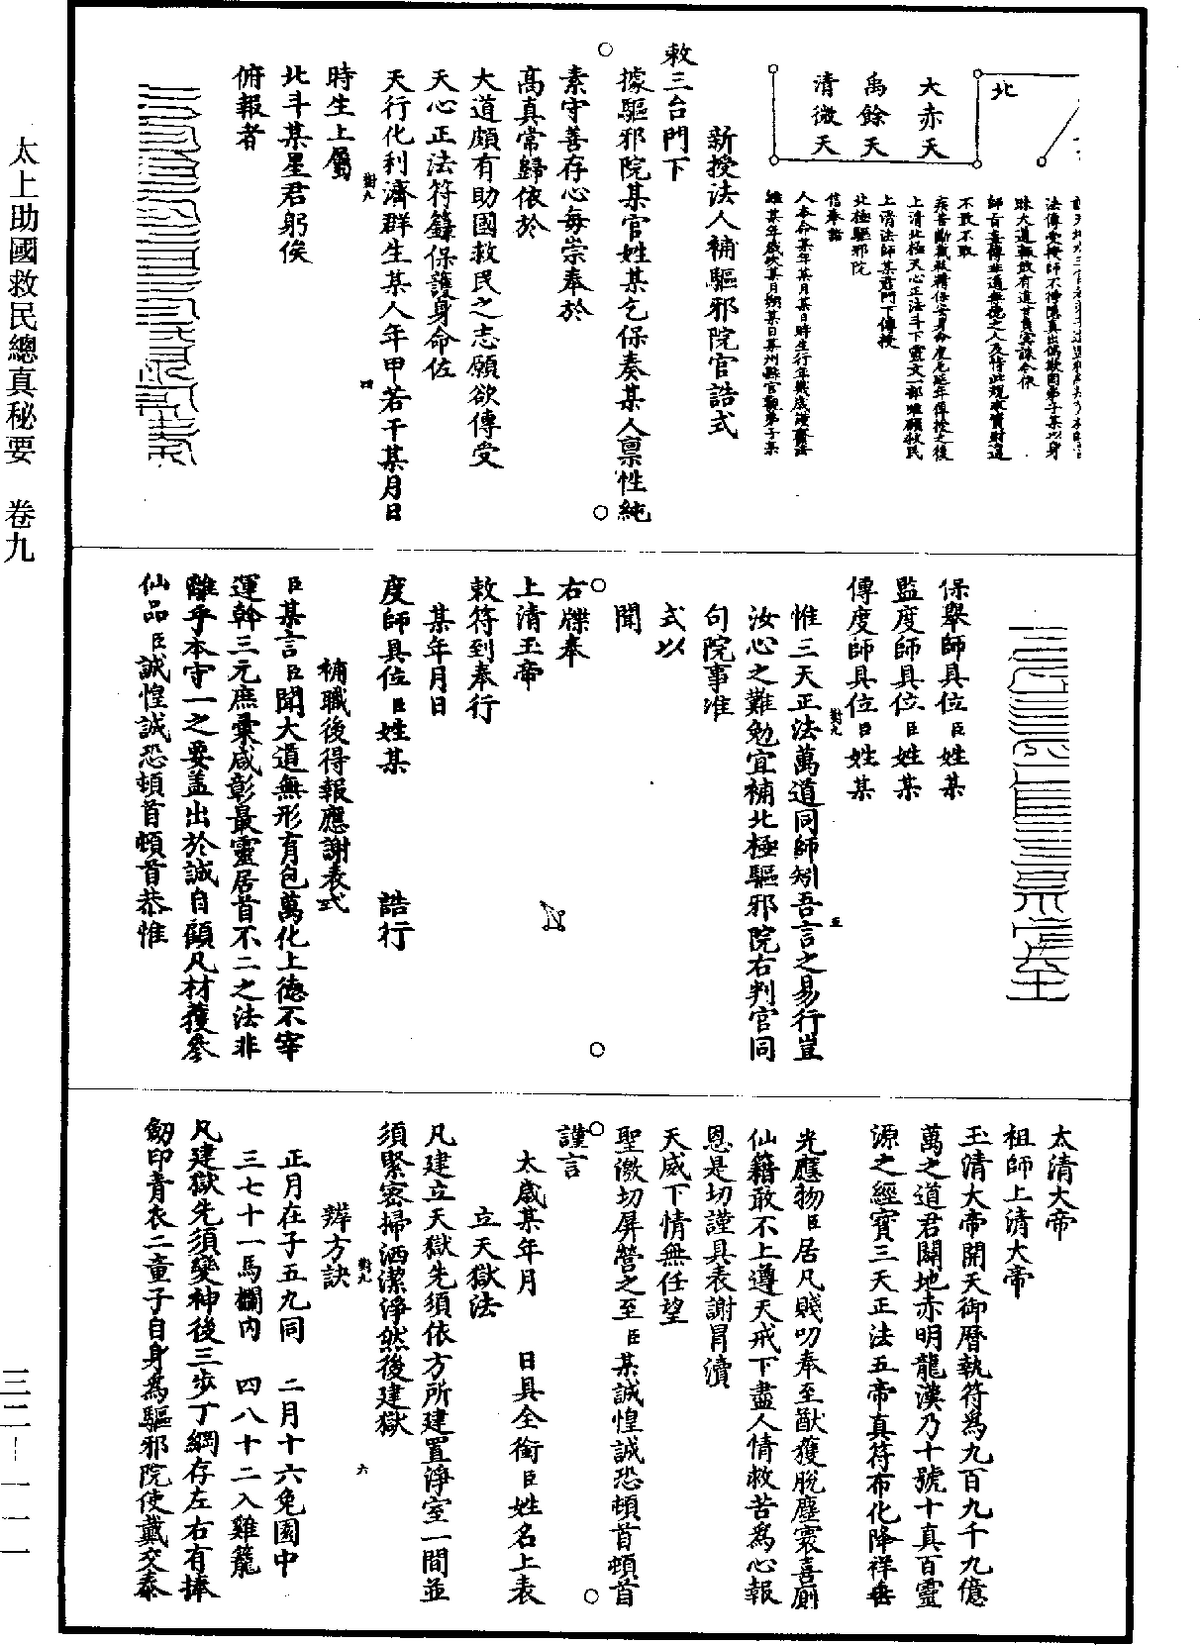 北
大赤天
禹餘天
清微天
法傳受授師不得隱真出偽欺罔弟子某以身
昧大道輒敢有違甘負冥誅令依
師旨妄傳非道無德之人及恃此規求資財違
不敢不敢
上清北極天心正法斗下靈文一部唯願救民
上清法師某君門下傳授
北極驅邪院
信奉詣
人本命某年某月某日時生行年幾歲謹齎法
維某年歲次某月朔某日某州縣官觀弟子某
新授法人補驅邪院官誥式
敕三台門下
據驅邪院某官姓某乞保奏某人稟性純
素守善存心每崇奉於
高真常歸依於
大道頗有助國救民之志願欲傳受
天心正法符籙保護身命佐
天行化利濟群生某人年甲若干某月日
時生上屬
北斗某星君躬俟
俯報者
保舉師具位臣姓某
監度師具位臣姓某
傳度師具位臣姓某
惟三天正法萬道同師矧吾言之易行豈
汝心之難勉宜補北極驅邪院右判官同
句院事准
式以
聞
右牒奉
上清玉帝
敕符到奉行
某年月日
度師具位臣姓某 誥行
補職後得報應謝表式
臣某言臣聞大道無形有包萬化上德不宰
運幹三元庶彙咸彰最靈居首不二之法非
離乎本守一之要蓋出於誠自顧凡材獲參
仙品臣誠惶誠恐頓首頓首恭惟
太清大帝
祖師上清大帝
玉清大帝開天御曆執符為九百九千九億
萬之道君闢地赤明龍漢乃十號十真百靈
源之經寶三天正法五帝真符布化降祥垂
光應物臣居凡賤叨奉至猷獲脫塵寰喜廁
仙籍敢不上遵天戒下盡人情救苦為心報
恩是切謹具表謝冒瀆
天威下情無任望
聖激切屏營之至臣某誠惶誠恐頓首頓首
謹言
太歲某年月 日具全銜臣姓名上表
立天獄法
凡建立天獄先須依方所建置淨室一間並
須緊密掃洒潔淨然後建獄
辨方訣
正月在子五九同 二月十六兔園中
三七十一馬欄內 四八十二入雞籠
凡建獄先須變神後三步丁綱存左右有捧
劒印青衣二童子自身為驅邪院使戴交泰
太上助國救民總真秘要 卷九
三二—一一一